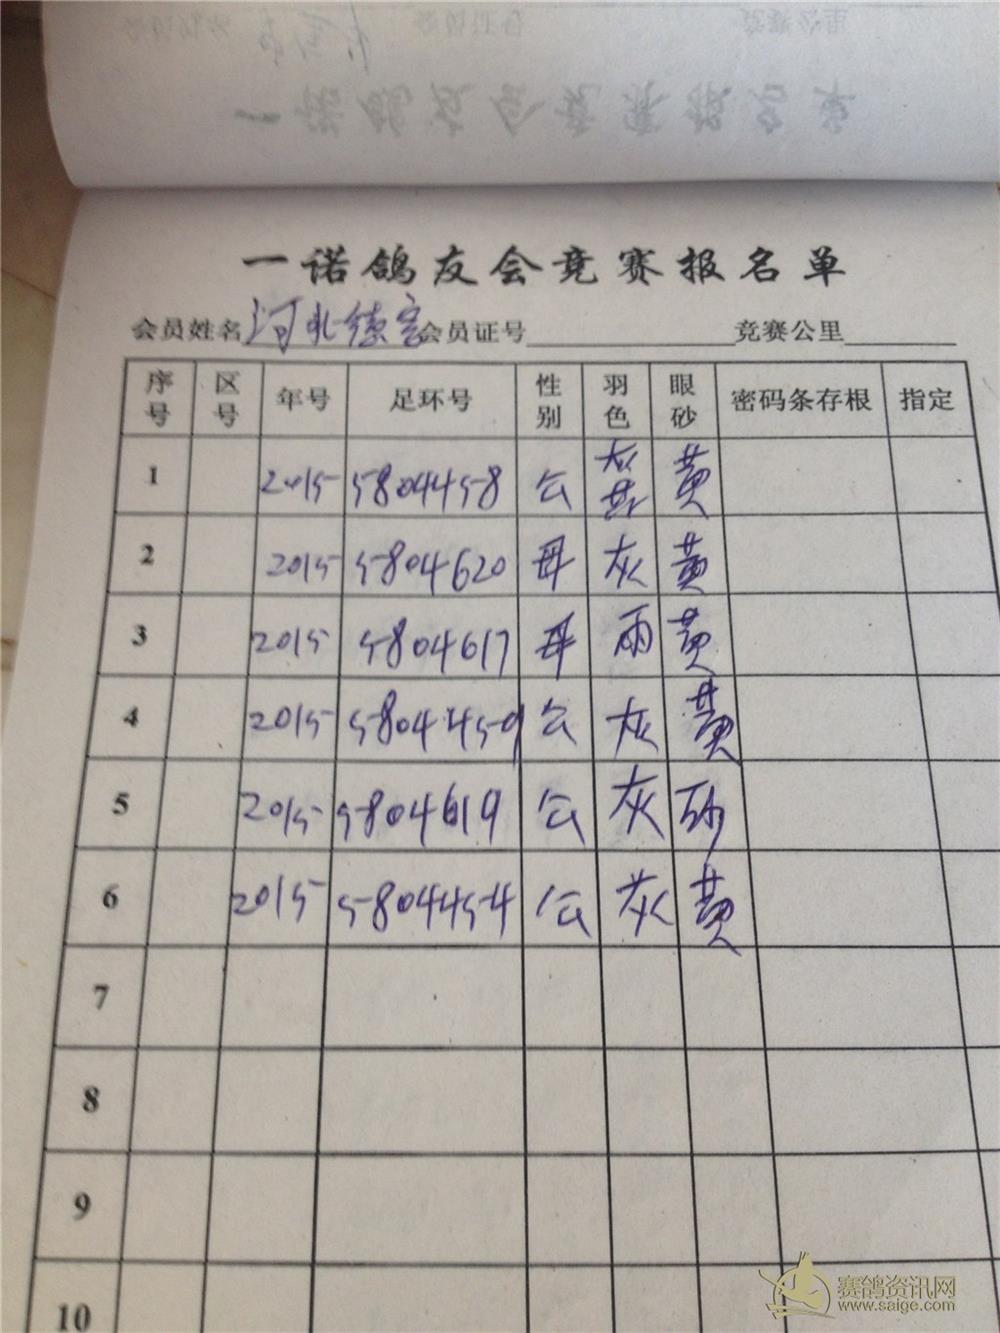 一诺鸽友会竞赛报名单
会员姓名 河北德 会员证号 竞赛公里
序号 区号 年号 足环号 性别 羽色 眼砂 密码条存根 指定
1 2015 5804458 公 黄
2 2015 5804620 母 灰 黄
3 2015 5804617 母 雨 黄
4 2015 5804459 公 灰 黄
5 2015 5804619 公 灰 砂
6 2015 5804454 公 灰 黄
7
8
9
10
赛鸽资讯网
www.saige.com